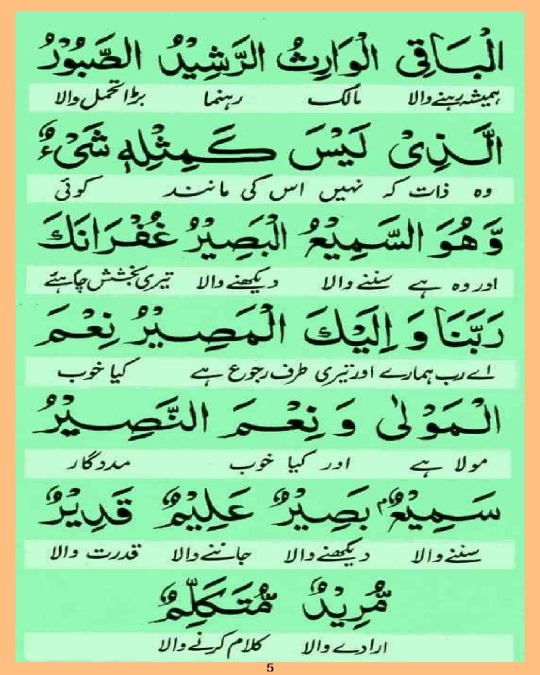 الْبَاقِی الْوَارِثُ الرَّشِیْدُ الصَّبُوْرُ
ہمیشہ رہنے والا مالک رہنما بڑا تحمل والا
الَّذِیْ لَیْسَ كَمِثْلِهٖ شَیْءٌ
وہ ذات کہ نہیں اس کی مانند کوئی
وَّهُوَ السَّمِیْعُ الْبَصِیْرُ غُفْرَانَكَ
اور وہ ہے سننے والا دیکھنے والا تیری بخشش چاہئے
رَبَّنَا وَ اِلَیْكَ الْمَصِیْرُ نِعْمَ
اے رب ہمارے اور تیری طرف رجوع ہے کیا خوب
الْمَوْلٰی وَ نِعْمَ النَّصِیْرُ
مولا ہے اور کیا خوب مددگار
سَمِیْعٌۢ بَصِیْرٌ عَلِیْمٌ قَدِیْرٌ
سننے والا دیکھنے والا جاننے والا قدرت والا
مُّرِیْدٌ مُّتَكَلِّمٌ
ارادے والا کلام کرنے والا
5